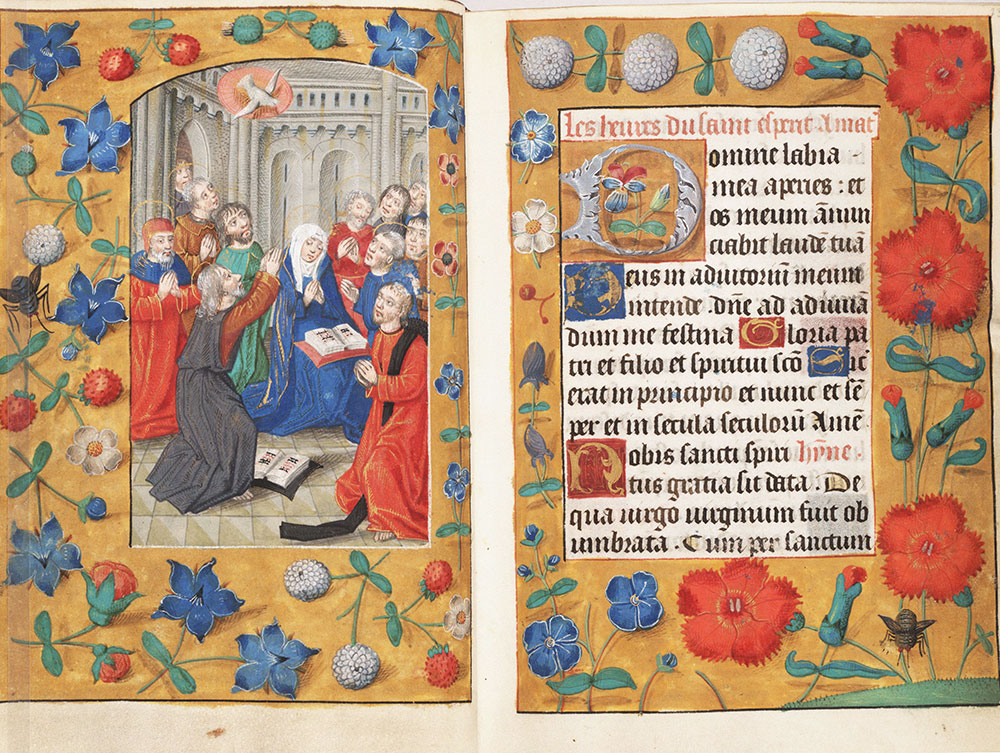 Les heures du saint esperit A mat̄
Domine labia
mea aperies : et
os meum ānun
ciabit laudē tuā
Deus in adiutorium meum
intende . dn̄e ad adiuuā
dum me festina Gloria pa
tri et filio et spiritui scō Sic
erat in principio et nunc et sē
per et in secula seculorū Amē
Nobis sancti spiri hȳne
tus gratia sit data . De
qua uirgo uirginum fuit ob
umbrata . Cum per sanctum